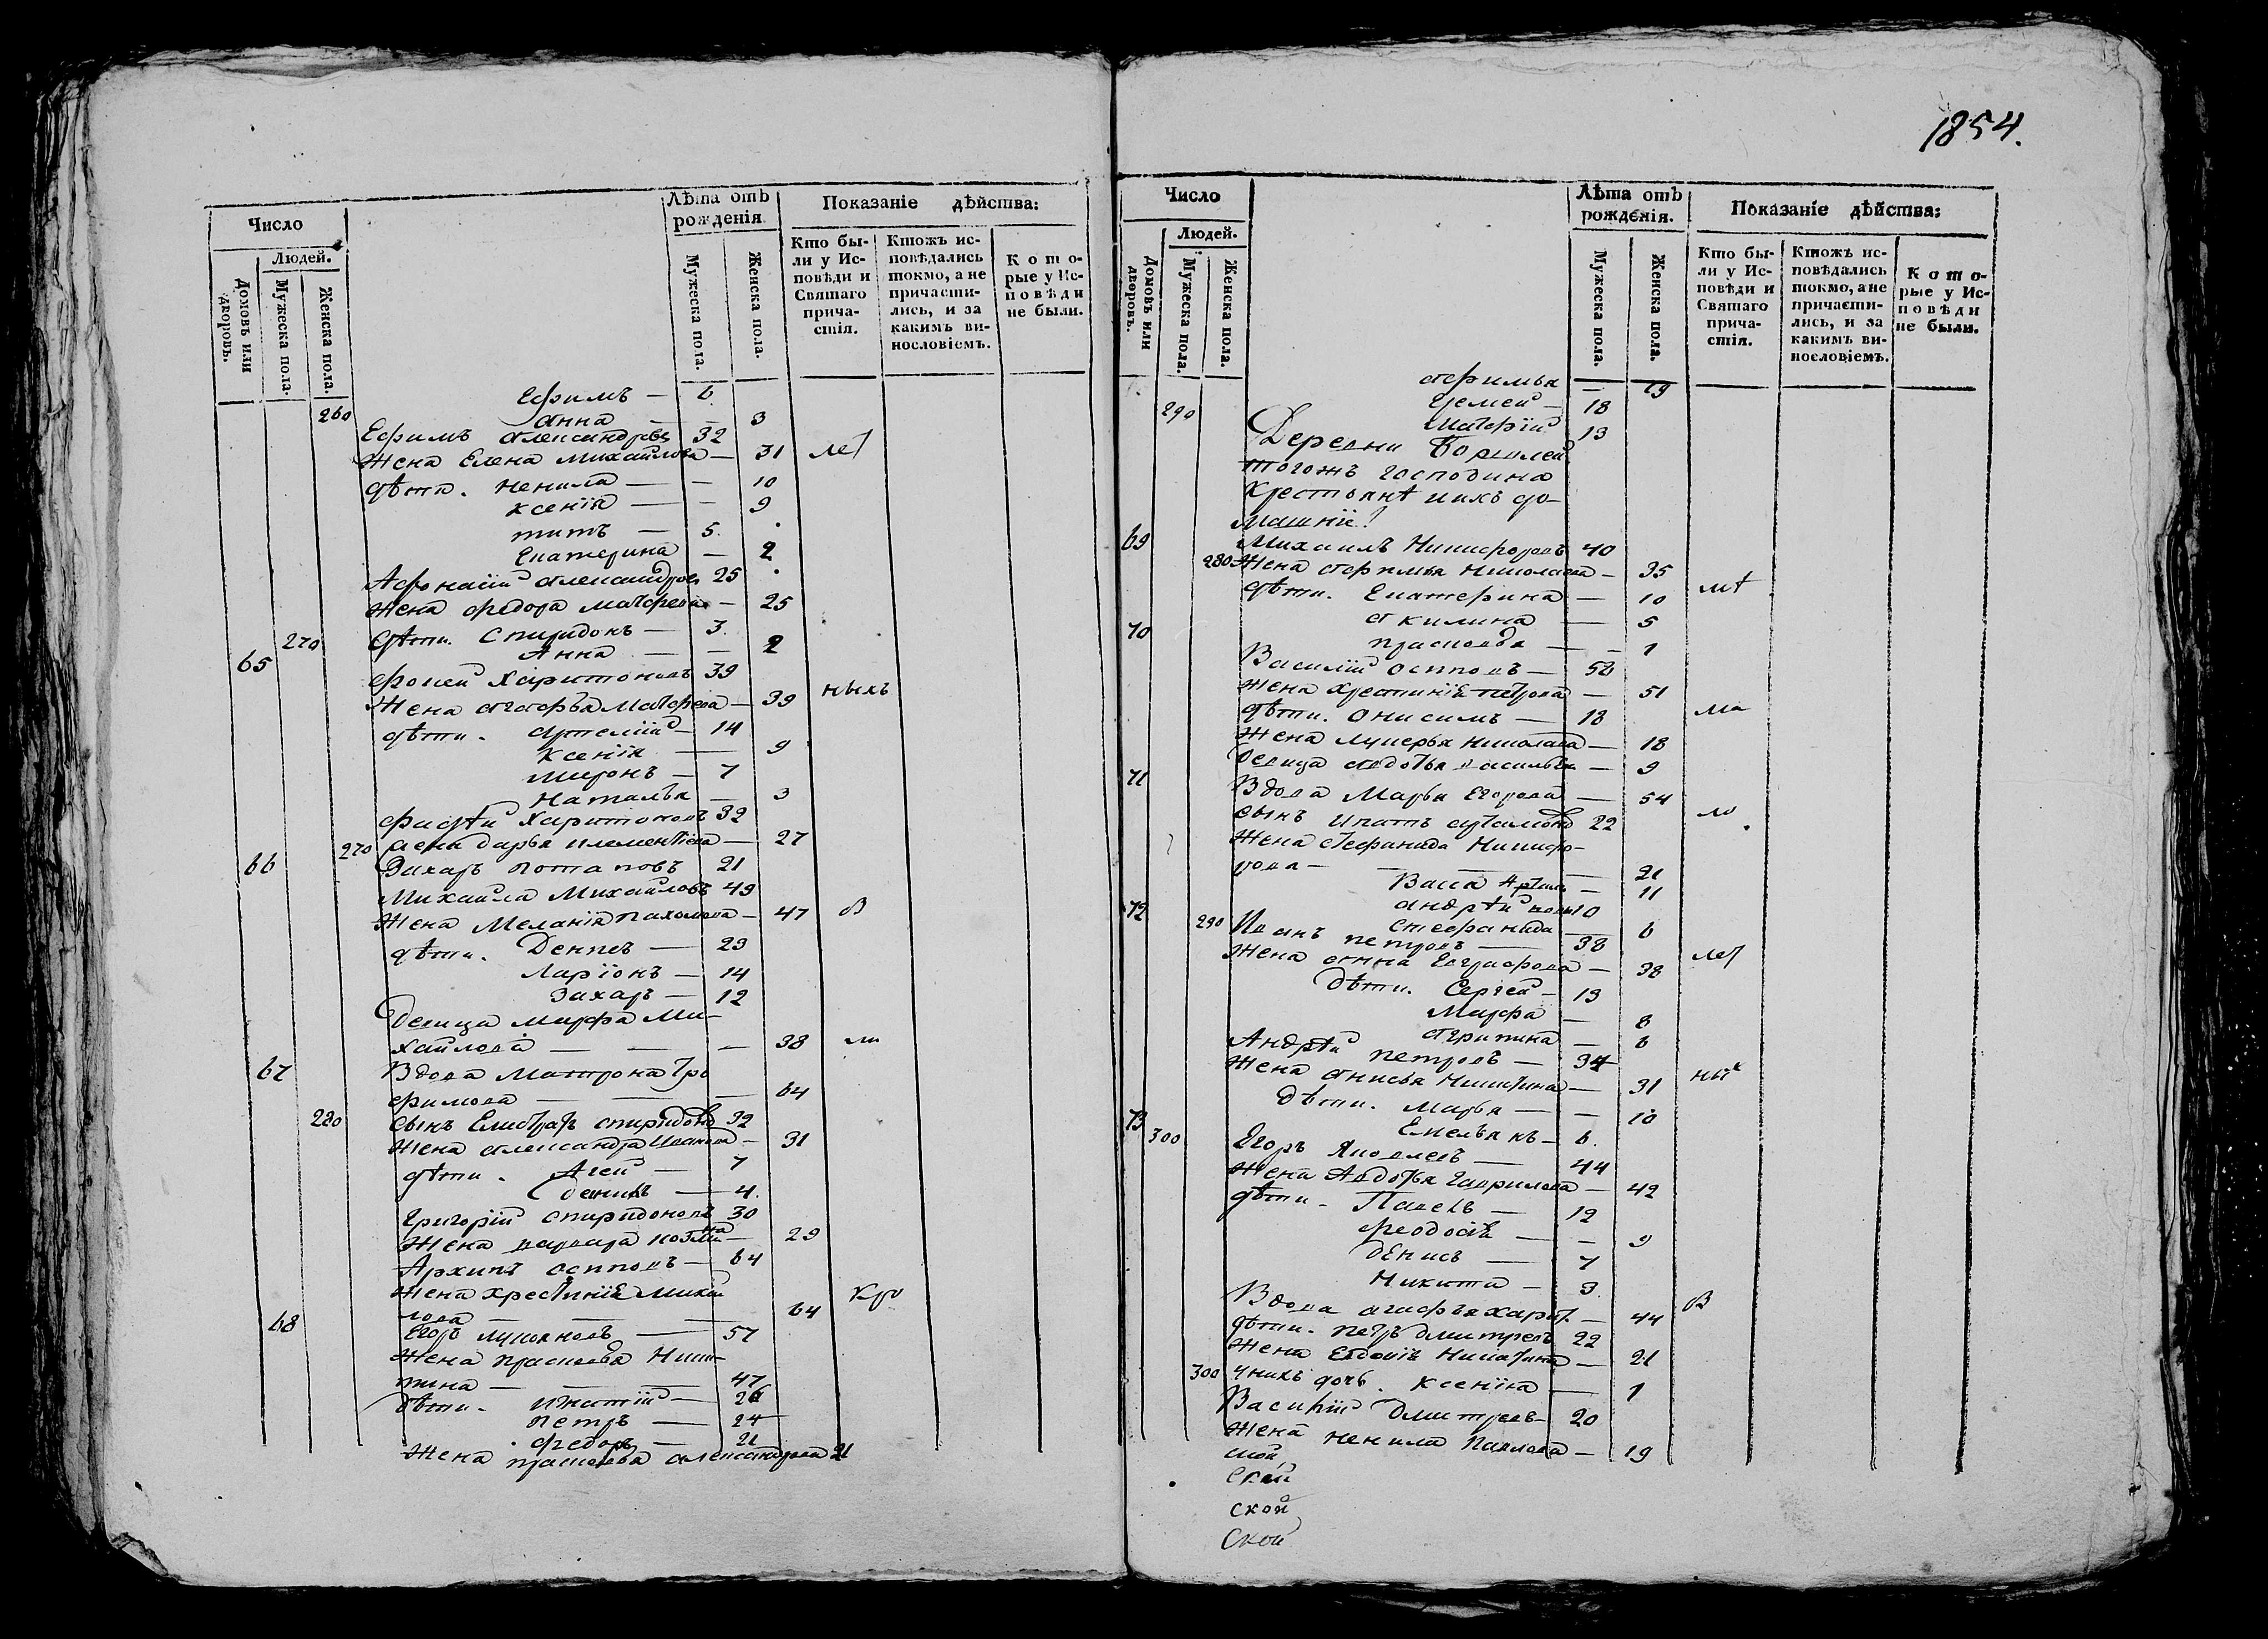 1854.
Число
Людей.
Домовъ или дворовъ.
Мужеска пола.
Женска пола.
Лѣта отъ рожденія.
Мужеска пола.
Женска пола.
Показаніе дѣйства:
Кто бы-
ли у Ис-
повѣди и
Святаго
прича-
стія.
Ктожъ ис-
повѣдались
токмо, а не
причасти-
лись, и за
какимъ ви-
нословіемъ.
К о т о-
рые у Ис-
п о в ѣ д и
не были.
Ефимъ — 6
260 Анна — — 3
Ефимъ Александровъ 32
Жена Елена Михайлова — 31
дѣти. Ненила — — 10
Ксенія — — 9
Титъ — 5.
Екатерина — 2
Афонасій Александровъ 25
Жена Федора Матфеева — 25
270 дѣти. Спиридонъ — 3.
Анна — — 2
65 Фокей Харитоновъ 39
Жена Агафья Матфеева — 39 ныхъ
дѣти. Артемій — 14
Ксенія — 9
Миронъ — 7
Наталья — 3
Фадѣй Харитоновъ 32
270 жена Дарья Клементіева — 27
66 Захаръ Потаповъ 21
Михайла Михайловъ 49
Жена Меланія Пахомова — 47 В
дѣти. Денисъ — 23
Ларіонъ — 14
Захаръ — 12
Девица Марфа Ми-
хайлова — — — 38 ли
67 Вдова Матрона Тро
фимова — — 64
280 Сынъ Елистратъ Спиридоновъ 32
Жена Александра Иванова — 31
дѣти. Агей — 7
Данилъ — 4.
Григорій Спиридоновъ 30
Жена Варвара Козмина — 29
Архипъ Осиповъ — 64
Жена Хрестинія Михай
лова — — — 64 Кро
68 Егоръ Лукояновъ — 57
Жена Прасковья Ники-
тина — — — 47
дѣти. Игнатій — 26
Петръ — 24
Федоръ — 21
Жена Прасковья Александрова 21
Число
Людей.
Домовъ или дворовъ.
Мужеска пола.
Женска пола.
Лѣта отъ рожденія.
Мужеска пола.
Женска пола.
Показаніе дѣйства:
Кто бы-
ли у Ис-
повѣди и
Святаго
прича-
стія.
Ктожъ ис-
повѣдались
токмо, а не
причасти-
лись, и за
какимъ ви-
нословіемъ.
К о т о-
рые у Ис-
п о в ѣ д и
не были.
Афимья — 19
290 Еремей — 18
Матфій 13
Деревни
тогожъ господина
Крестьянѣ ихъ до-
машніе
69 Михаилъ Никифоровъ 40
280 Жена Афимья Николаева — 35
дѣти. Екатерина — 10
Акилина — 5
70 Прасковья — — 1
Василій Осиповъ — 52
Жена Хрестинія Петрова — 51
дѣти. Онисимъ — 18 ма
Жена Лукерья Николаева — 18
Девица Авдотья Васильева — 9
71 Вдова Марья Егорова — 54
Сынъ Ипатъ Артамоновъ 22 ло
Жена Стефанида Никифо-
рова — — — 21
Васса — 11
Андрѣй 10
72 290 Стефанида — 6
Иванъ Петровъ — 38
Жена Анна Евграфова — 38
дѣти. Сергей — 13
Марфа — 8
Агрипина — 6
Андрѣй Петровъ — 34
Жена Анисья Никитина — 31 ных
дѣти. Марья — — 10
73 300 Емельянъ — 6.
Егоръ Яковлевъ — 44
Жена Авдотья Гаврилова — 42
дѣти. Павелъ — 12
Феодосія — — 9
Денисъ — 7
Никита — 3.
Вдова Агафья Харит. — 44 В
дѣти. Петръ Дмитревъ 22
Жена Евдокія Никитина — 21
300 у нихъ дочь. Ксенія — 1
Василій Дмитревъ — 20
Жена Ненила Павлова — 19
ской
ской